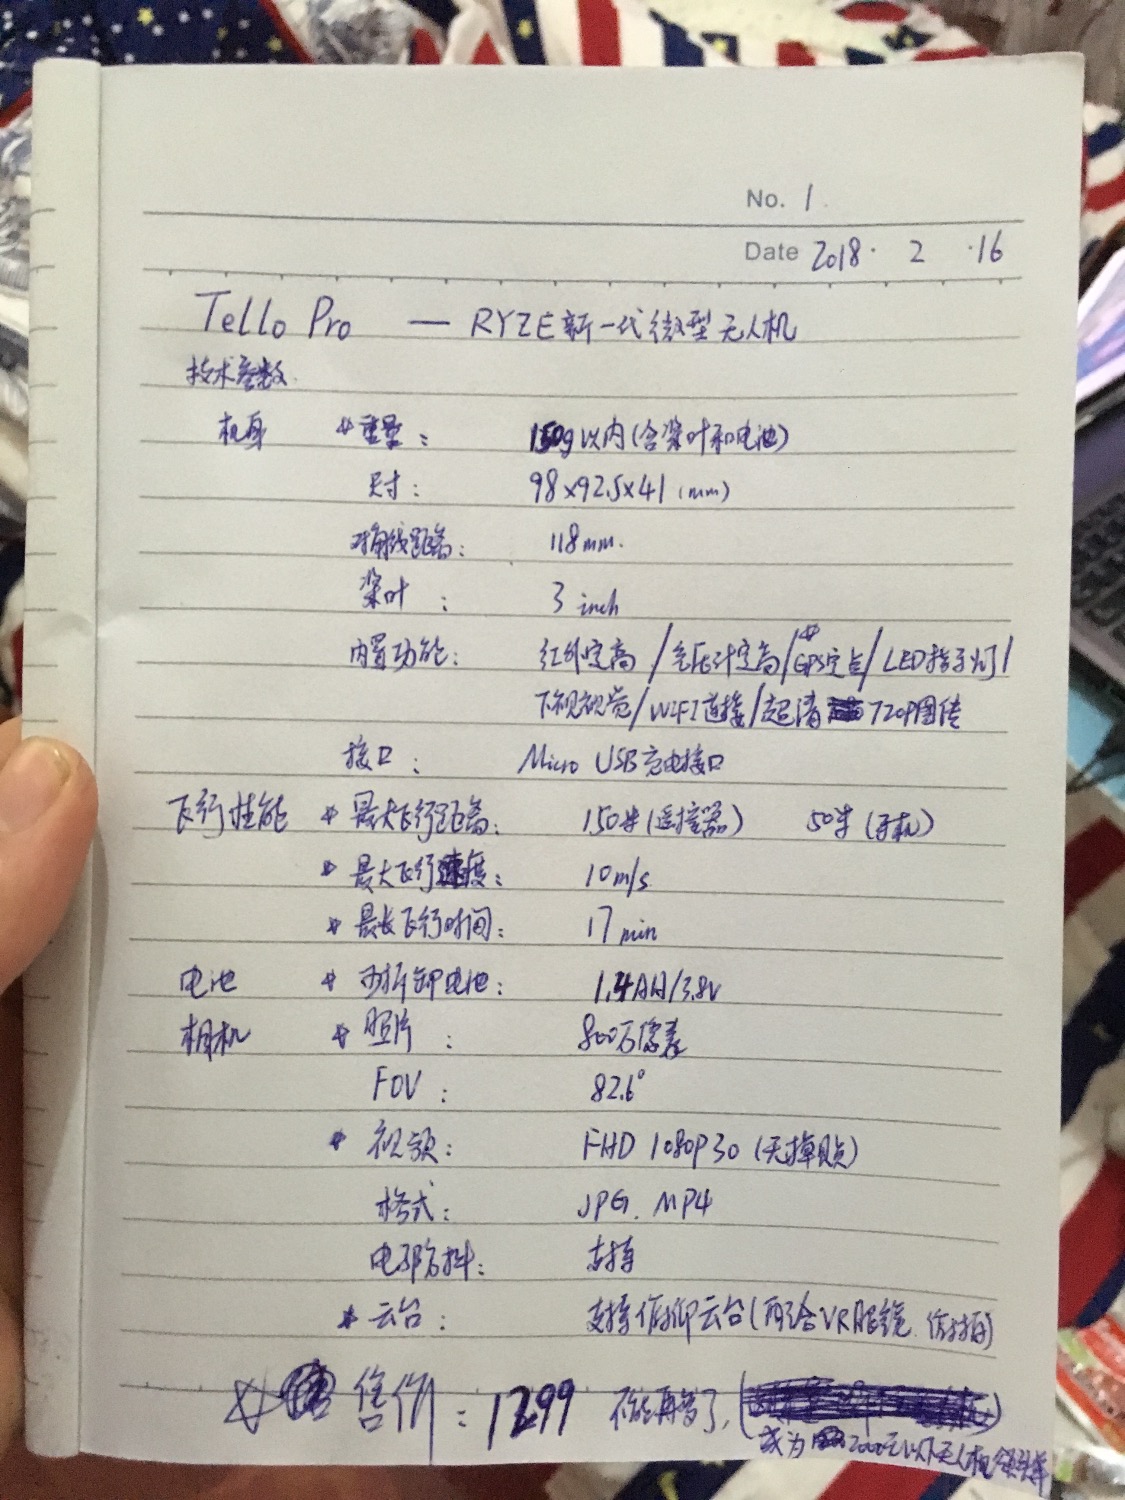 No. 1
Date 2018. 2 .16
Tello Pro — RYZE新一代微型无人机
技术参数
机身 *重量: 150g以内(含桨叶和电池)
尺寸: 98×92.5×41 (mm)
对角线距离: 118mm.
桨叶: 3 inch
内置功能: 红外定高/气压计定高/*GPS定点/LED指示灯/
下视视觉/WIFI连接/超清720P图传
接口: Micro USB充电接口
飞行性能 *最大飞行距离: 150米(遥控器) 50米(手机)
*最大飞行速度: 10m/s
*最长飞行时间: 17min
电池 *可拆卸电池: 1.4AH/3.8V
相机 *照片: 800万像素
FOV: 82.6°
*视频: FHD 1080P30 (无掉帧)
格式: JPG. MP4
电子防抖: 支持
*云台: 支持俯仰云台(配合VR眼镜 俯拍)
☆ 售价: 1299 不能再多了,
成为2000元以下无人机领头羊